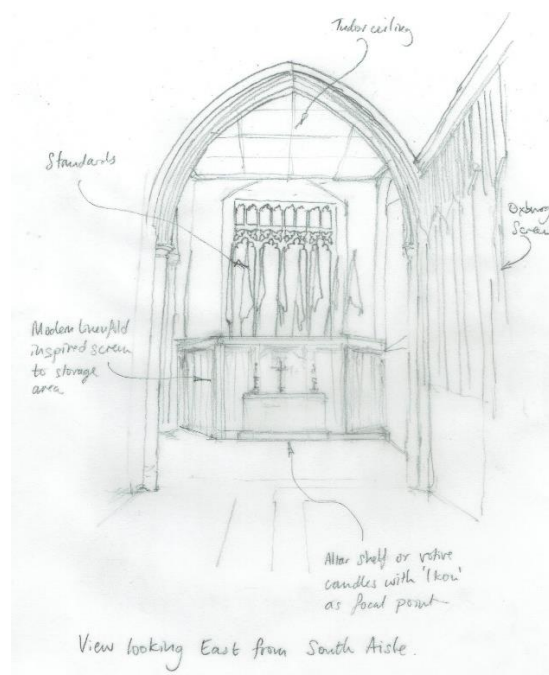 Tudor ceiling
Standards
Oxburg
Screen
Modern linenfold
inspired screen
to storage
area
Altar shelf or votive
candles with 'Ikon'
as focal point
View looking East from South Aisle.